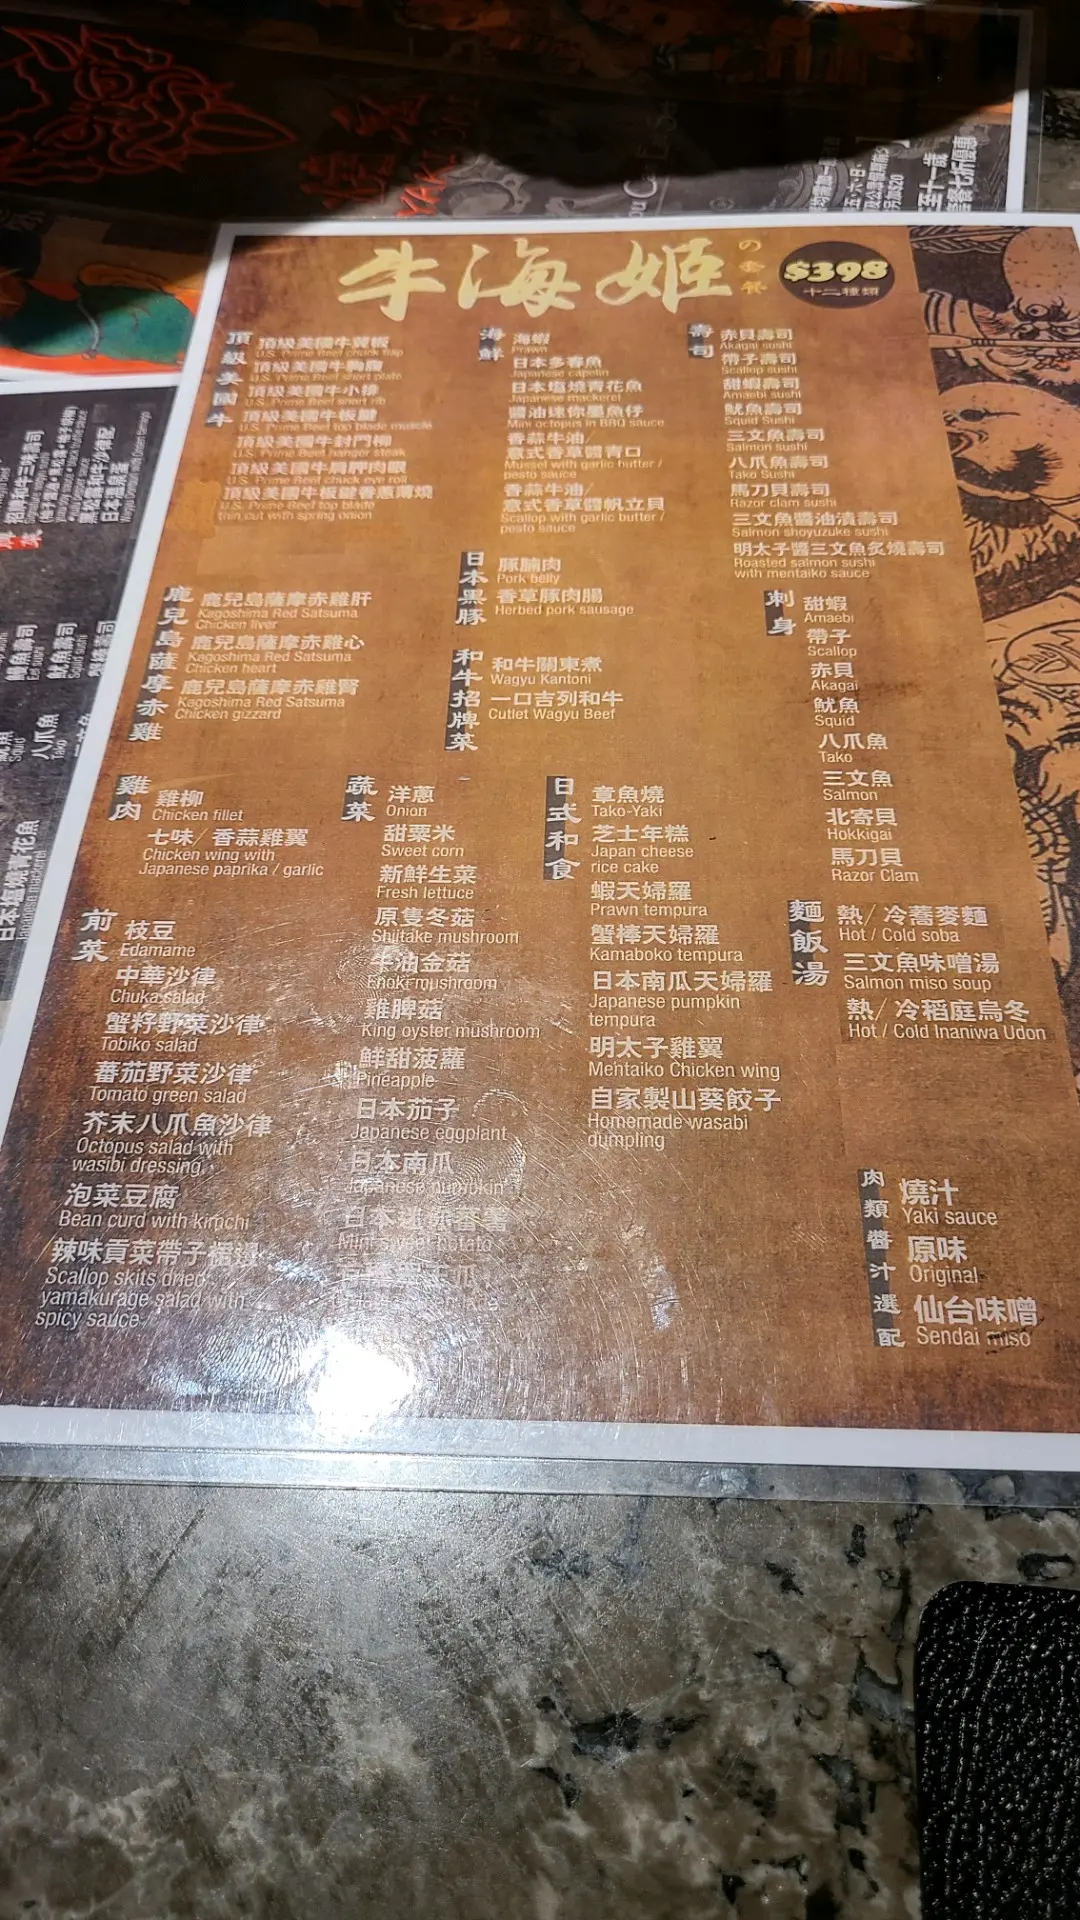 牛海姬
の套餐
$398
十二種類
頂級美國牛
頂級美國牛翼板
U.S. Prime Beef chuck flap
頂級美國牛胸腹
U.S. Prime Beef short plate
頂級美國牛小排
U.S. Prime Beef short rib
頂級美國牛板腱
U.S. Prime Beef top blade muscle
頂級美國牛封門柳
U.S. Prime Beef hanger steak
頂級美國牛肩胛肉眼
U.S. Prime Beef chuck eye roll
頂級美國牛板腱香蔥薄燒
U.S. Prime Beef top blade
thin cut with spring onion
鹿兒島薩摩赤雞
鹿兒島薩摩赤雞肝
Kagoshima Red Satsuma
Chicken liver
鹿兒島薩摩赤雞心
Kagoshima Red Satsuma
Chicken heart
鹿兒島薩摩赤雞腎
Kagoshima Red Satsuma
Chicken gizzard
雞肉
雞柳
Chicken fillet
七味/ 香蒜雞翼
Chicken wing with
Japanese paprika / garlic
前菜
枝豆
Edamame
中華沙律
Chuka salad
蟹籽野菜沙律
Tobiko salad
蕃茄野菜沙律
Tomato green salad
芥末八爪魚沙律
Octopus salad with
wasibi dressing
泡菜豆腐
Bean curd with kimchi
辣味貢菜帶子裙邊
Scallop skits dried
yamakurage salad with
spicy sauce
海鮮
海蝦
Prawn
日本多春魚
Japanese capelin
日本塩燒青花魚
Japanese mackerel
醬油迷你墨魚仔
Mini octopus in BBQ sauce
香蒜牛油/
意式香草醬青口
Mussel with garlic butter /
pesto sauce
香蒜牛油/
意式香草醬帆立貝
Scallop with garlic butter /
pesto sauce
日本黑豚
豚腩肉
Pork belly
香草豚肉腸
Herbed pork sausage
和牛招牌菜
和牛關東煮
Wagyu Kantoni
一口吉列和牛
Cutlet Wagyu Beef
蔬菜
洋蔥
Onion
甜粟米
Sweet corn
新鮮生菜
Fresh lettuce
原隻冬菇
Shiitake mushroom
牛油金菇
Enoki mushroom
雞脾菇
King oyster mushroom
鮮甜菠蘿
Pineapple
日本茄子
Japanese eggplant
日本南瓜
Japanese pumpkin
日本迷你蕃薯
Mini sweet potato
日式和食
章魚燒
Tako-Yaki
芝士年糕
Japan cheese
rice cake
蝦天婦羅
Prawn tempura
蟹棒天婦羅
Kamaboko tempura
日本南瓜天婦羅
Japanese pumpkin
tempura
明太子雞翼
Mentaiko Chicken wing
自家製山葵餃子
Homemade wasabi
dumpling
壽司
赤貝壽司
Akagai sushi
帶子壽司
Scallop sushi
甜蝦壽司
Amaebi sushi
魷魚壽司
Squid Sushi
三文魚壽司
Salmon sushi
八爪魚壽司
Tako Sushi
馬刀貝壽司
Razor clam sushi
三文魚醬油漬壽司
Salmon shoyuzuke sushi
明太子醬三文魚炙燒壽司
Roasted salmon sushi
with mentaiko sauce
刺身
甜蝦
Amaebi
帶子
Scallop
赤貝
Akagai
魷魚
Squid
八爪魚
Tako
三文魚
Salmon
北寄貝
Hokkigai
馬刀貝
Razor Clam
麵飯湯
熱/ 冷蕎麥麵
Hot / Cold soba
三文魚味噌湯
Salmon miso soup
熱/ 冷稻庭烏冬
Hot / Cold Inaniwa Udon
肉類醬汁選配
燒汁
Yaki sauce
原味
Original
仙台味噌
Sendai miso
八爪魚
Tako
日本塩燒青花魚
Japanese mackerel